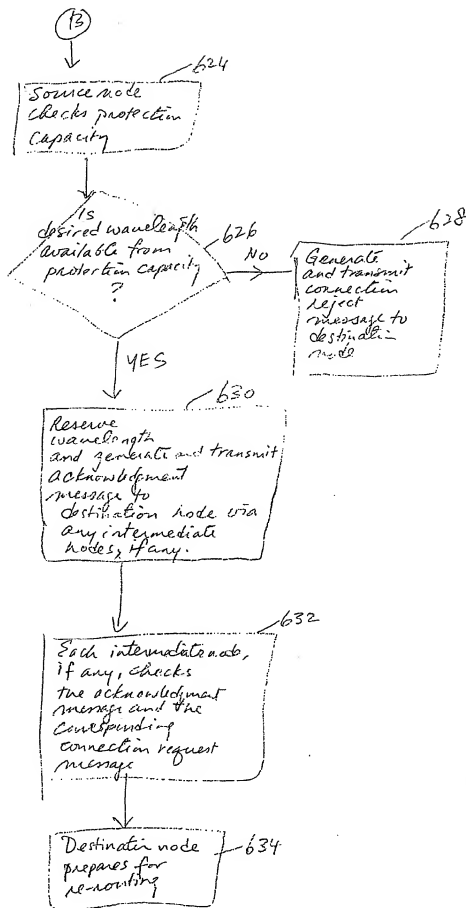 B
624
Source node
checks protection
capacity
Is
desired wavelength
available from
protection capacity
?
626
NO
628
Generate
and transmit
connection
reject
message to
destination
node
YES
630
Reserve
wavelength
and generate and transmit
acknowledgment
message to
destination node via
any intermediate
nodes, if any.
632
Each intermediate node,
if any, checks
the acknowledgment
message and the
corresponding
connection request
message
634
Destination node
prepares for
re-routing